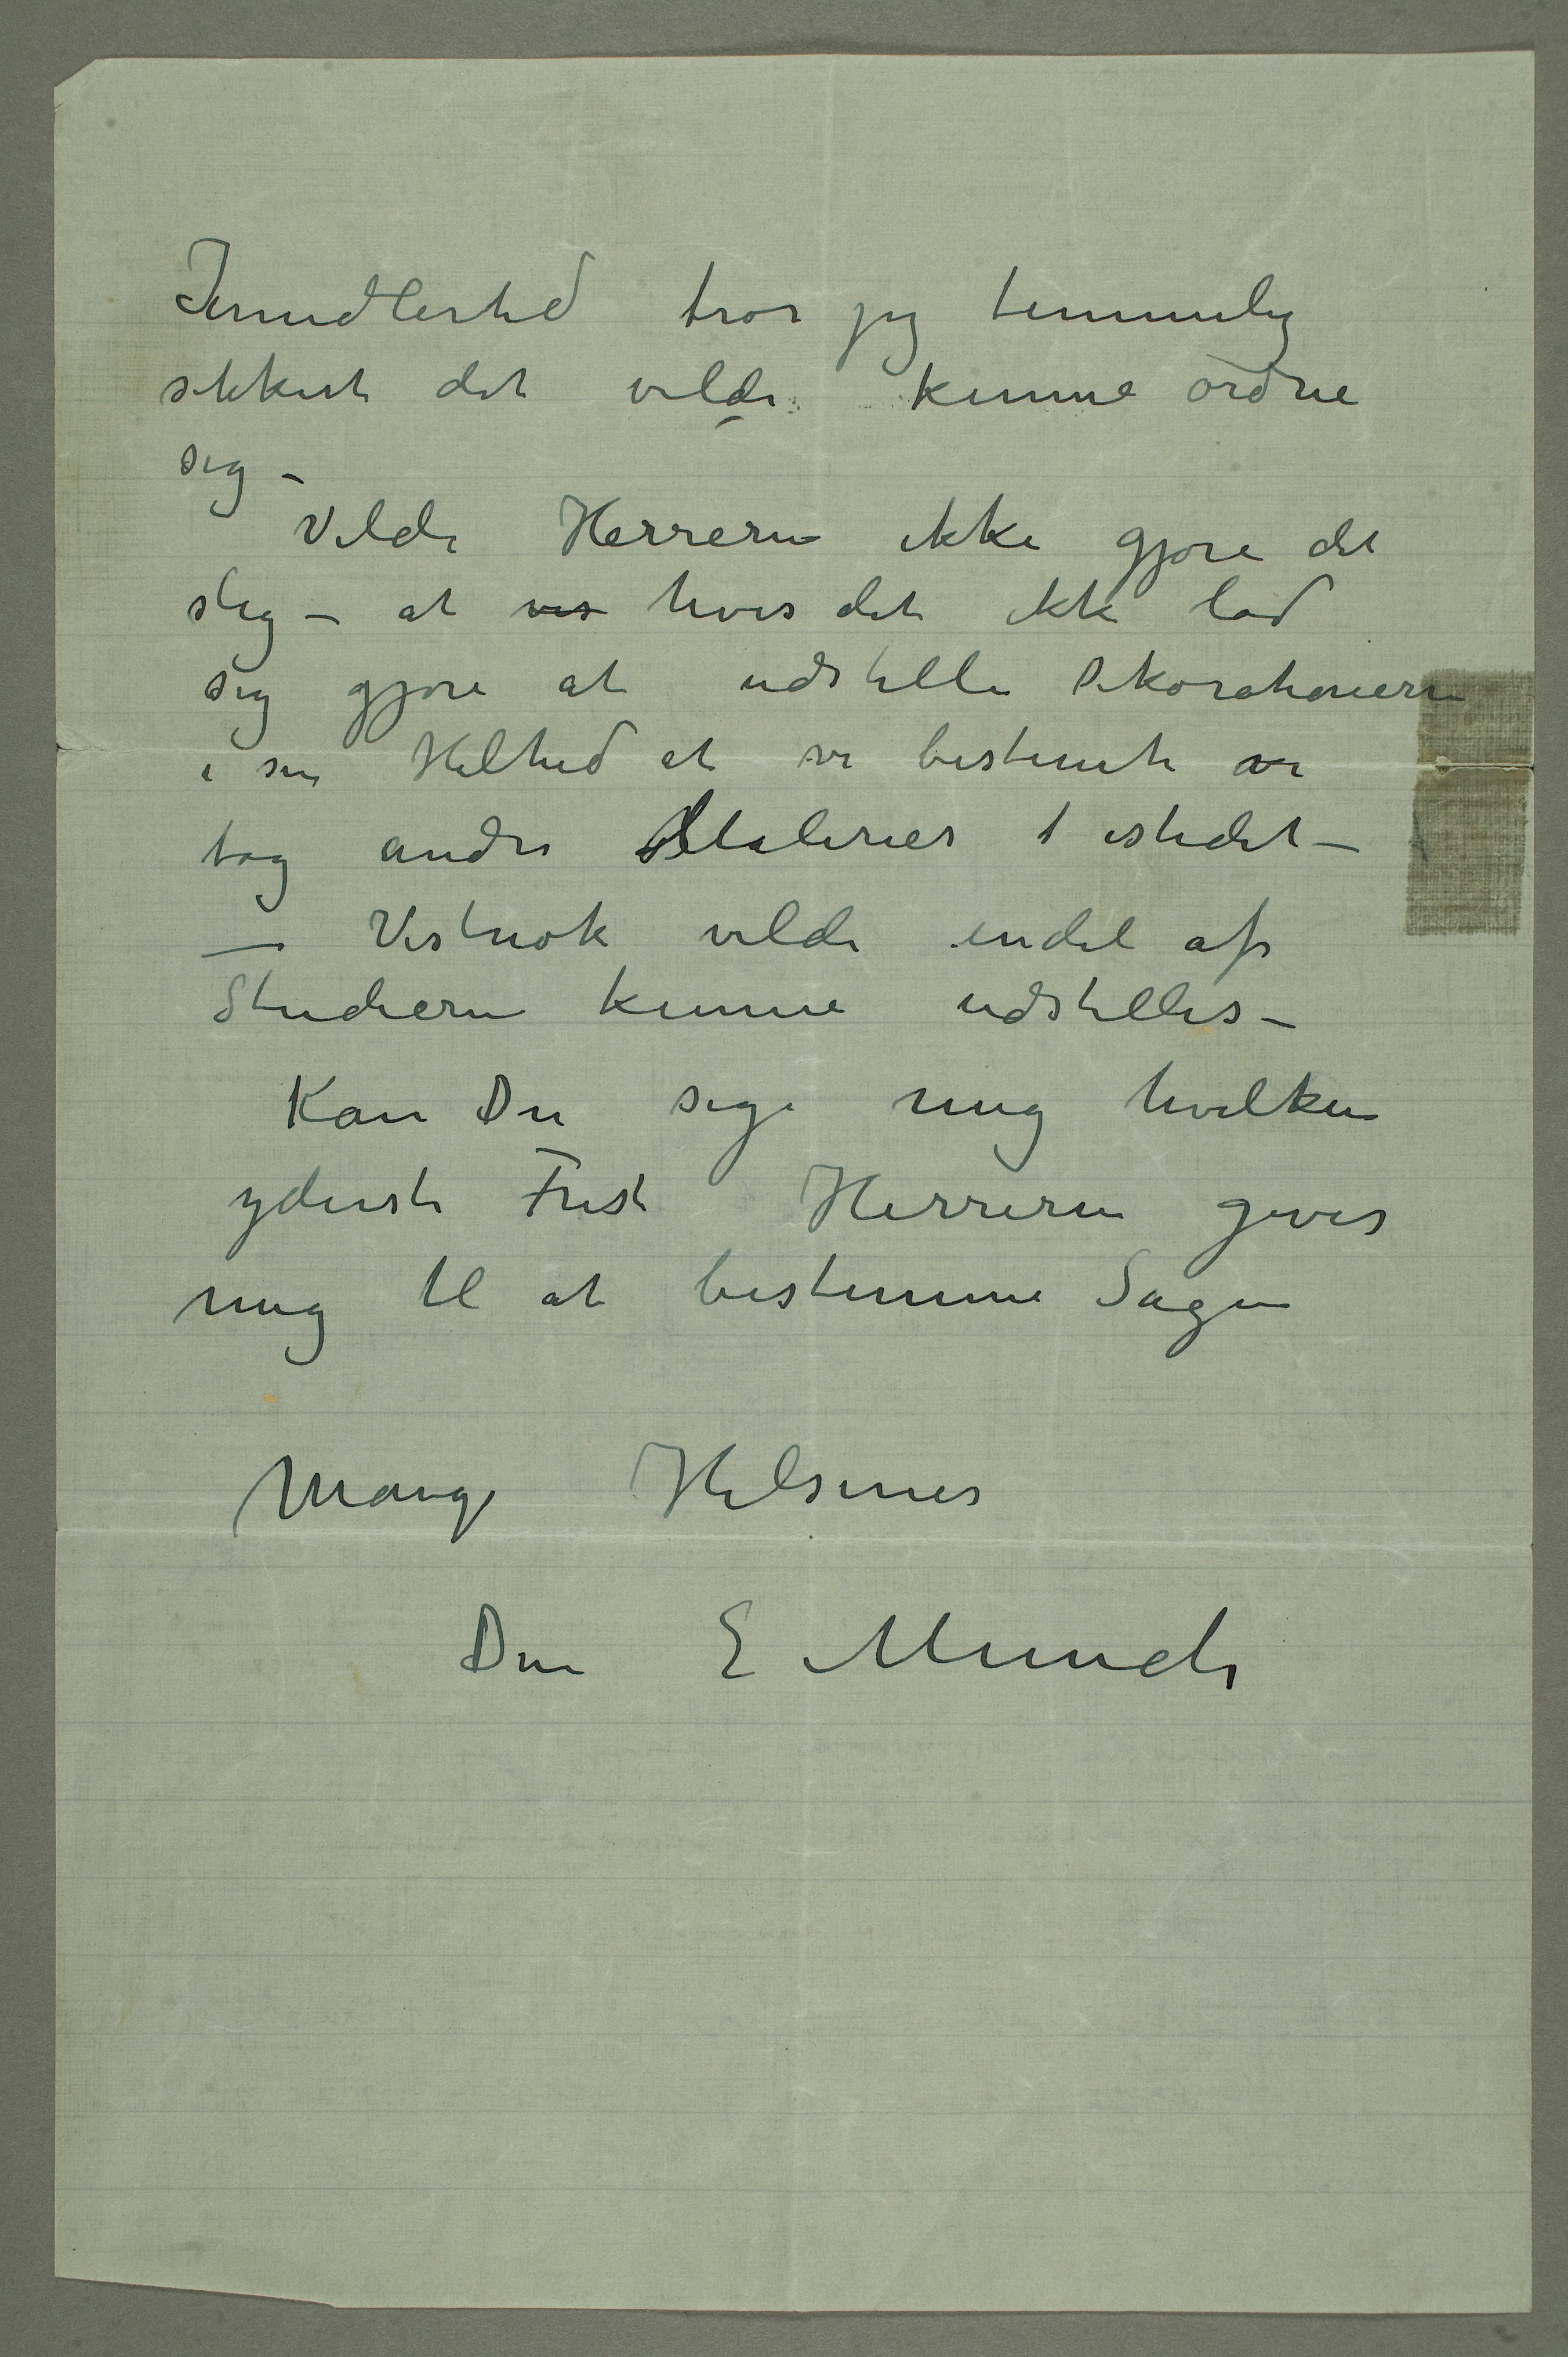 Imidlertid tror jeg temmelig
sikkert det vilde kunne ordne
sig –
Vilde Herrerne ikke gjøre det
slig – at vis hvis det ikke lod
sig gjøre at udstille Dekorationerne
i sin Helhed at vi bestemte vi
tog andre Malerier i istedet –
– Vistnok vilde endel af
Studierne kunne udstilles –
Kan Du sige mig hvilken
yderste Frist Herrerne giver
mig til at bestemme Sagen
Mange Hilsener
Din E Munch